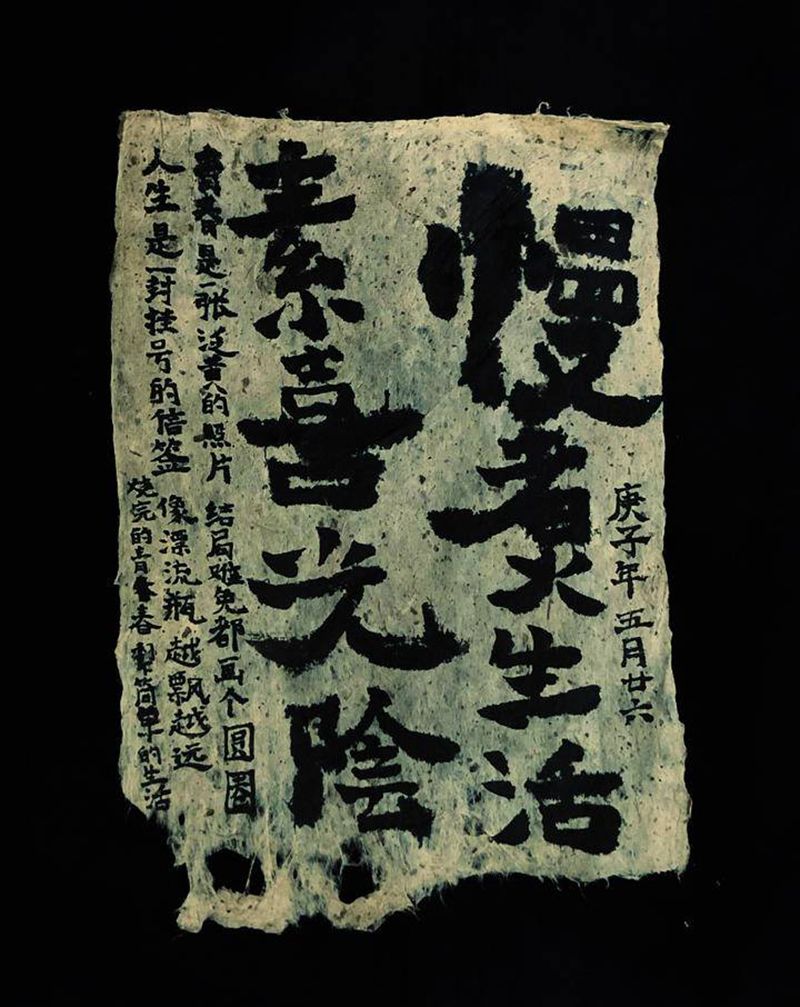 庚子年 五月廿六
慢煮生活
素喜光陰
青春是一张泛黄的照片 结局难免都画个圆圈
人生是一封挂号的信签 像漂流瓶 越飘越远
烧完的青春 简单的生活